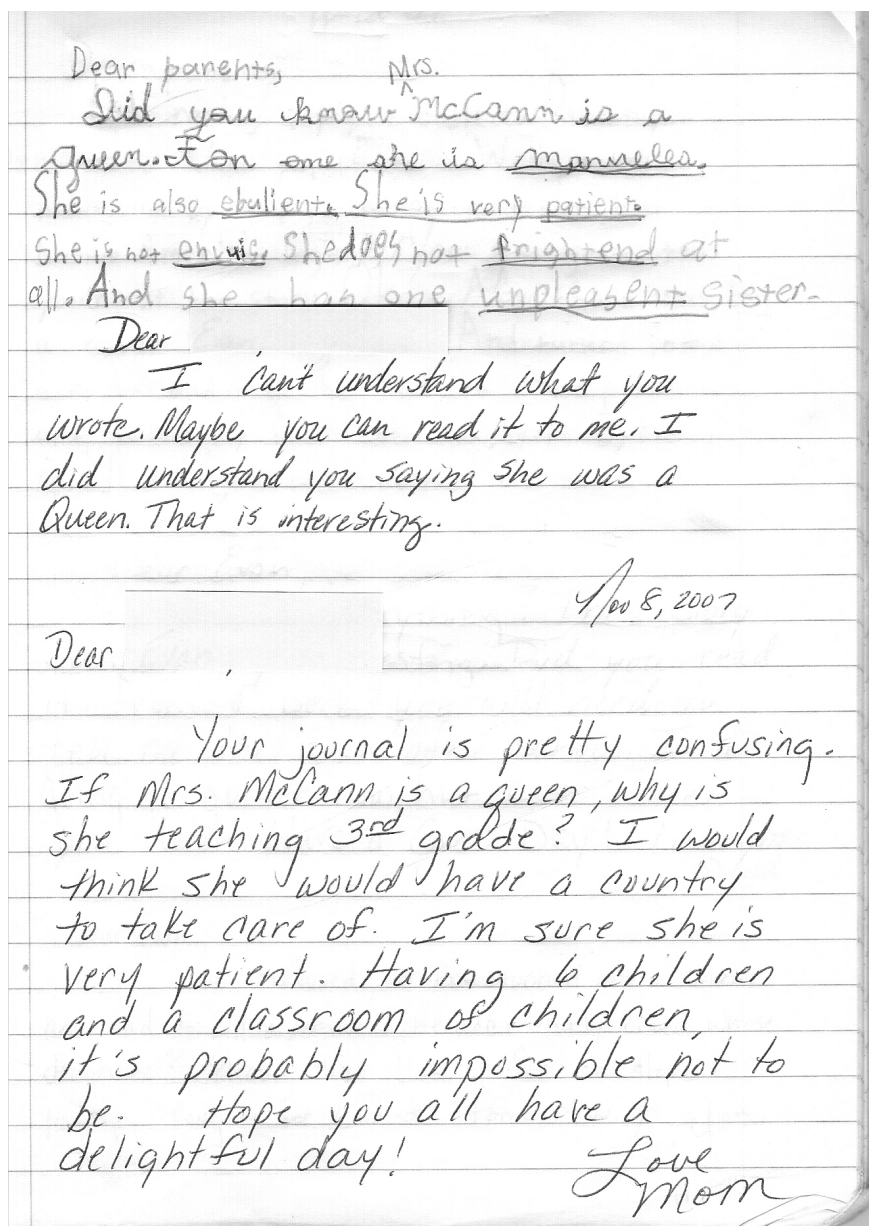 Dear parents, Mrs.
Did you know ^ McCann is a
queen. For one she is manvelea.
She is also ebulient. She is very patient.
She is not envuis. She does not frightend at
all. And she has one unpleasent sister.
Dear ,
I can't understand what you
wrote. Maybe you can read it to me. I
did understand you saying she was a
Queen. That is interesting.
Nov 8, 2007
Dear ,
Your journal is pretty confusing.
If Mrs. McCann is a queen, why is
she teaching 3rd grade? I would
think she would have a country
to take care of. I'm sure she is
very patient. Having 6 children
and a classroom of children,
it's probably impossible not to
be. Hope you all have a
delightful day!
Love
Mom